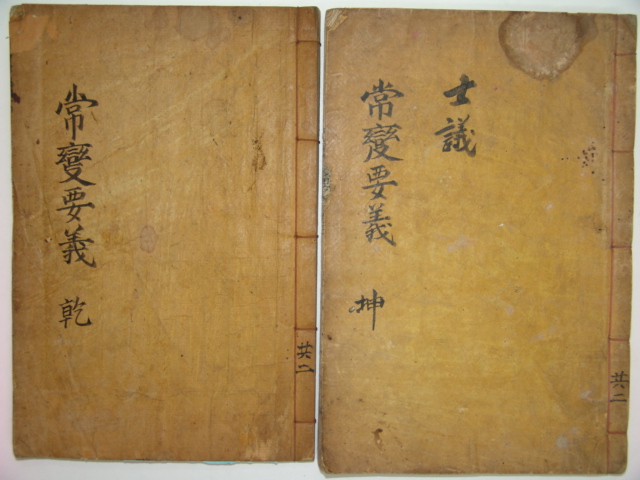 常變要義 乾
共二
士議
常變要義 坤
共二